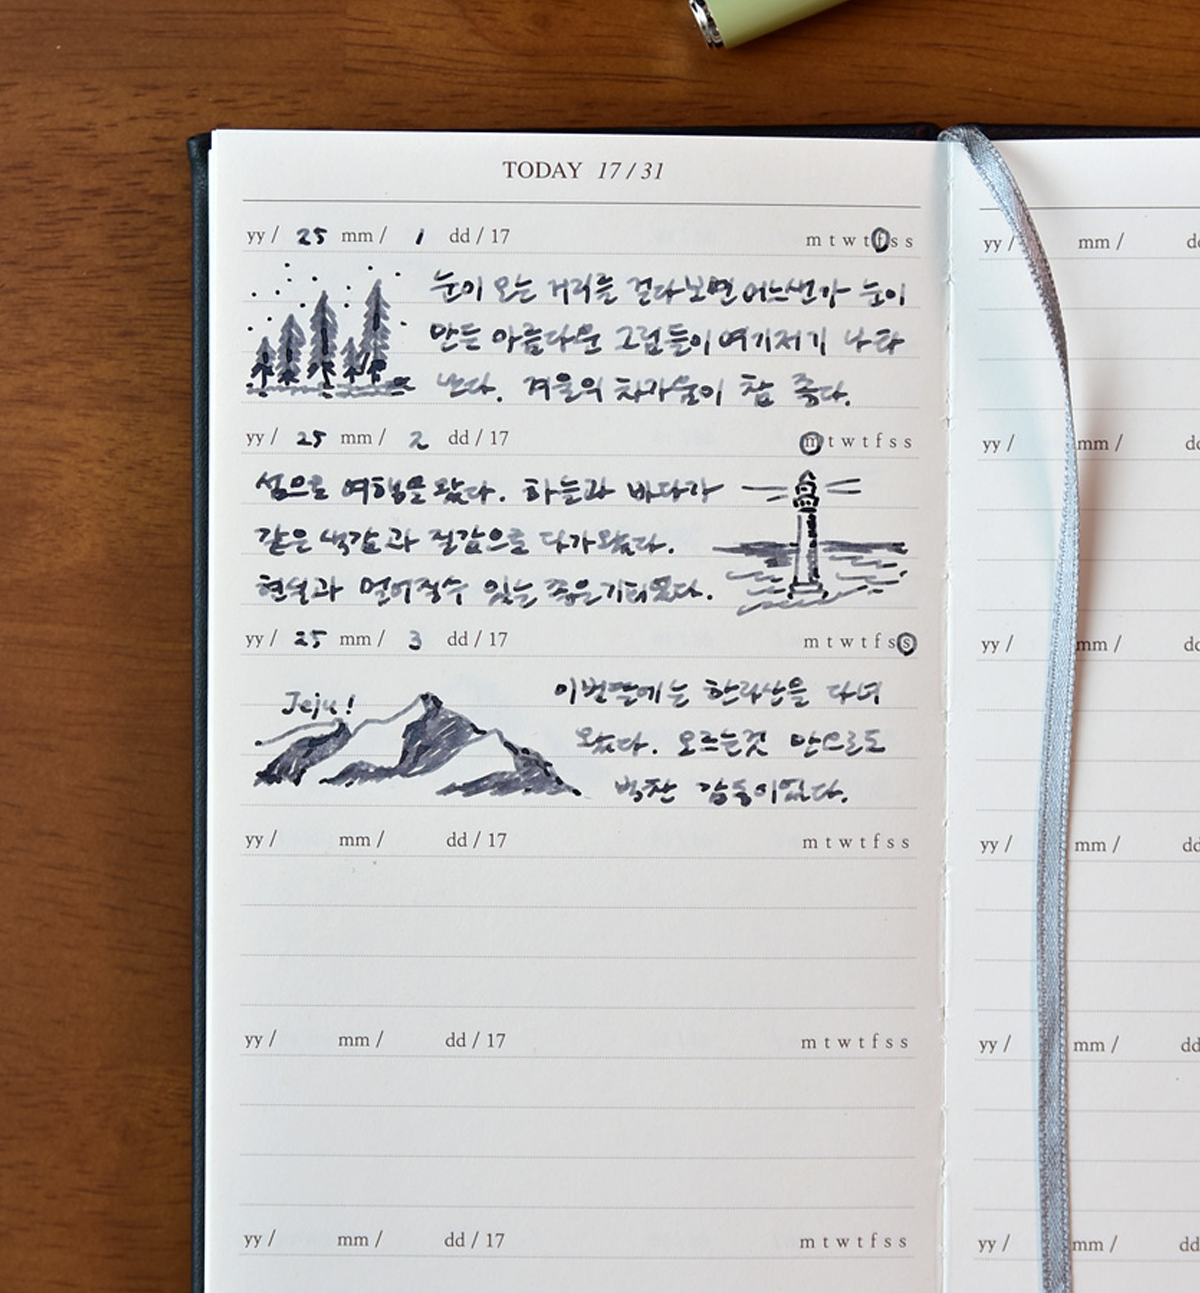 TODAY 17/31
yy / 25 mm / 1 dd / 17 m t w t f s s
눈이 오는 거리를 걷다보면 어느샌가 눈이
만든 아름다운 그림들이 여기저기 나타
난다. 겨울의 차가움이 참 좋다.
yy / 25 mm / 2 dd / 17 m t w t f s s
섬으로 여행을 왔다. 하늘과 바다가
같은 색감과 질감으로 다가왔다.
현실과 멀어질수 있는 좋은
yy / 25 mm / 3 dd / 17 m t w t f s s
Jeju!
이번달에는 한라산을 다녀
왔다. 오르는것 만으로도
벅찬 감동이었다.
yy / mm / dd / 17 m t w t f s s
yy / mm / dd / 17 m t w t f s s
yy / mm / dd / 17 m t w t f s s
yy / mm / dd
yy / mm /
yy / mm / dd
yy / mm / dd
yy / mm / dd
yy / mm / dd